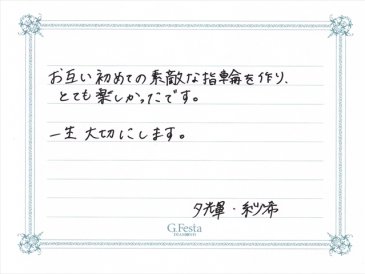 お互い初めての素敵な指輪を作り、
とても楽しかったです。
一生大切にします。
夕輝・紗希
G.Festa